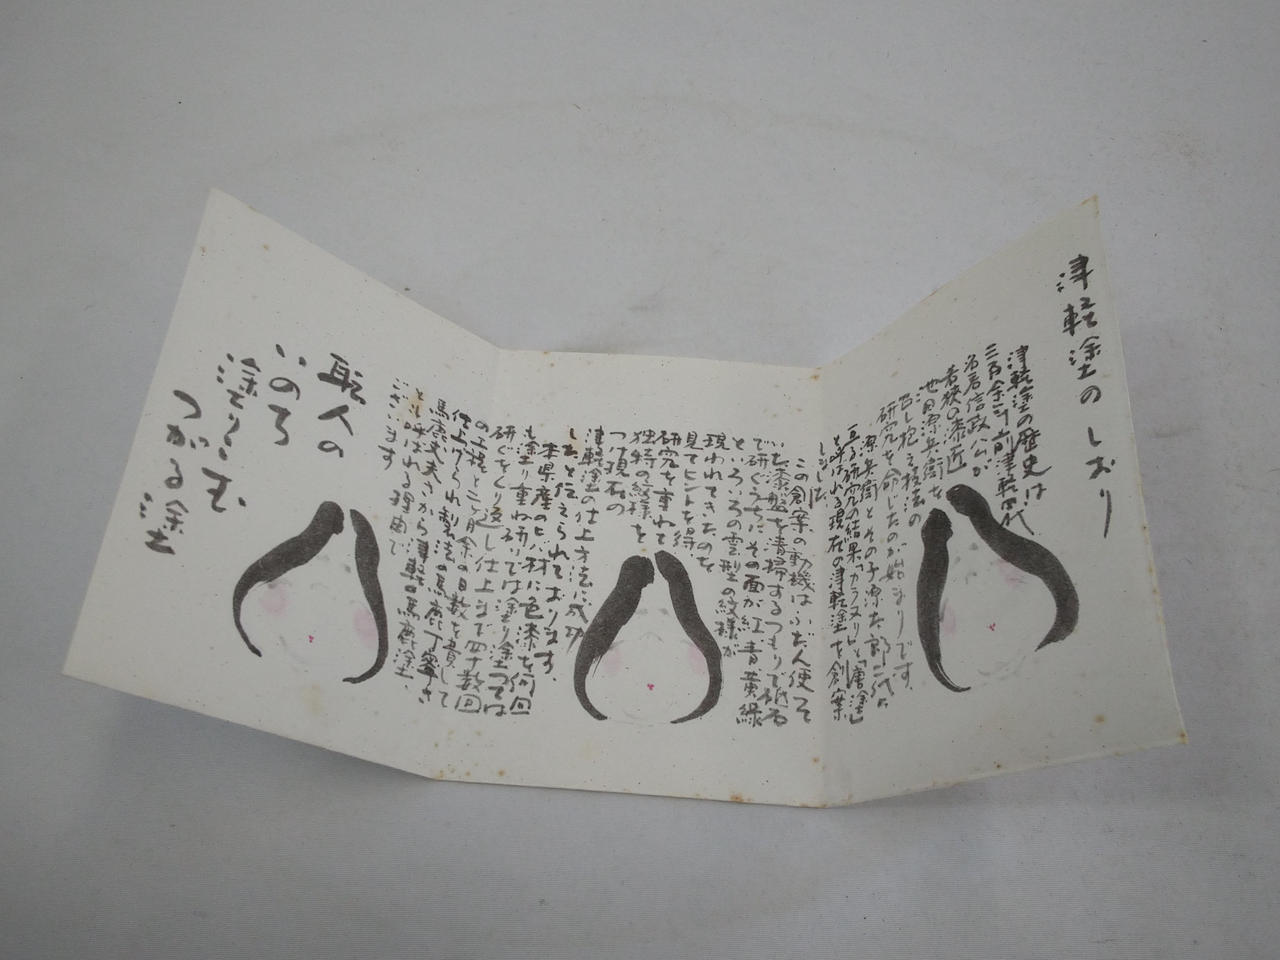 津軽塗のしおり
津軽塗の歴史は
三百余年前津軽四代
名君信政公が
若狭の漆匠
池田源兵衛を
召し抱え技法の
研究を命じたのが始まりです。
源兵衛とその子源太郎二代に
亘る研究の結果「カラヌリ」と「唐塗」
と呼ばれる現在の津軽塗を創案
しました
この創案の動機はふだん使って
いた漆盤を清掃するつもりで砥石
で研ぐうちにその面が紅青黄緑
といろいろの雲型の紋様が
現われてきたのを
見てヒントを得
研究を重ねて
独特の紋様を
つけ現在の
津軽塗の仕上方法に成功
したと伝えられております
本県産のヒバ材に色漆を何回
も塗り重ね研いでは塗り塗っては
研ぐをくり返し仕上まで四十数回
の工程と二ヶ月余の日数を費して
仕上げられ製法の馬鹿丁寧さ
馬鹿丈夫さから津軽の馬鹿塗、
と呼ばれる理由で
ございます
耺人の
いのち
塗りこむ
つがる塗